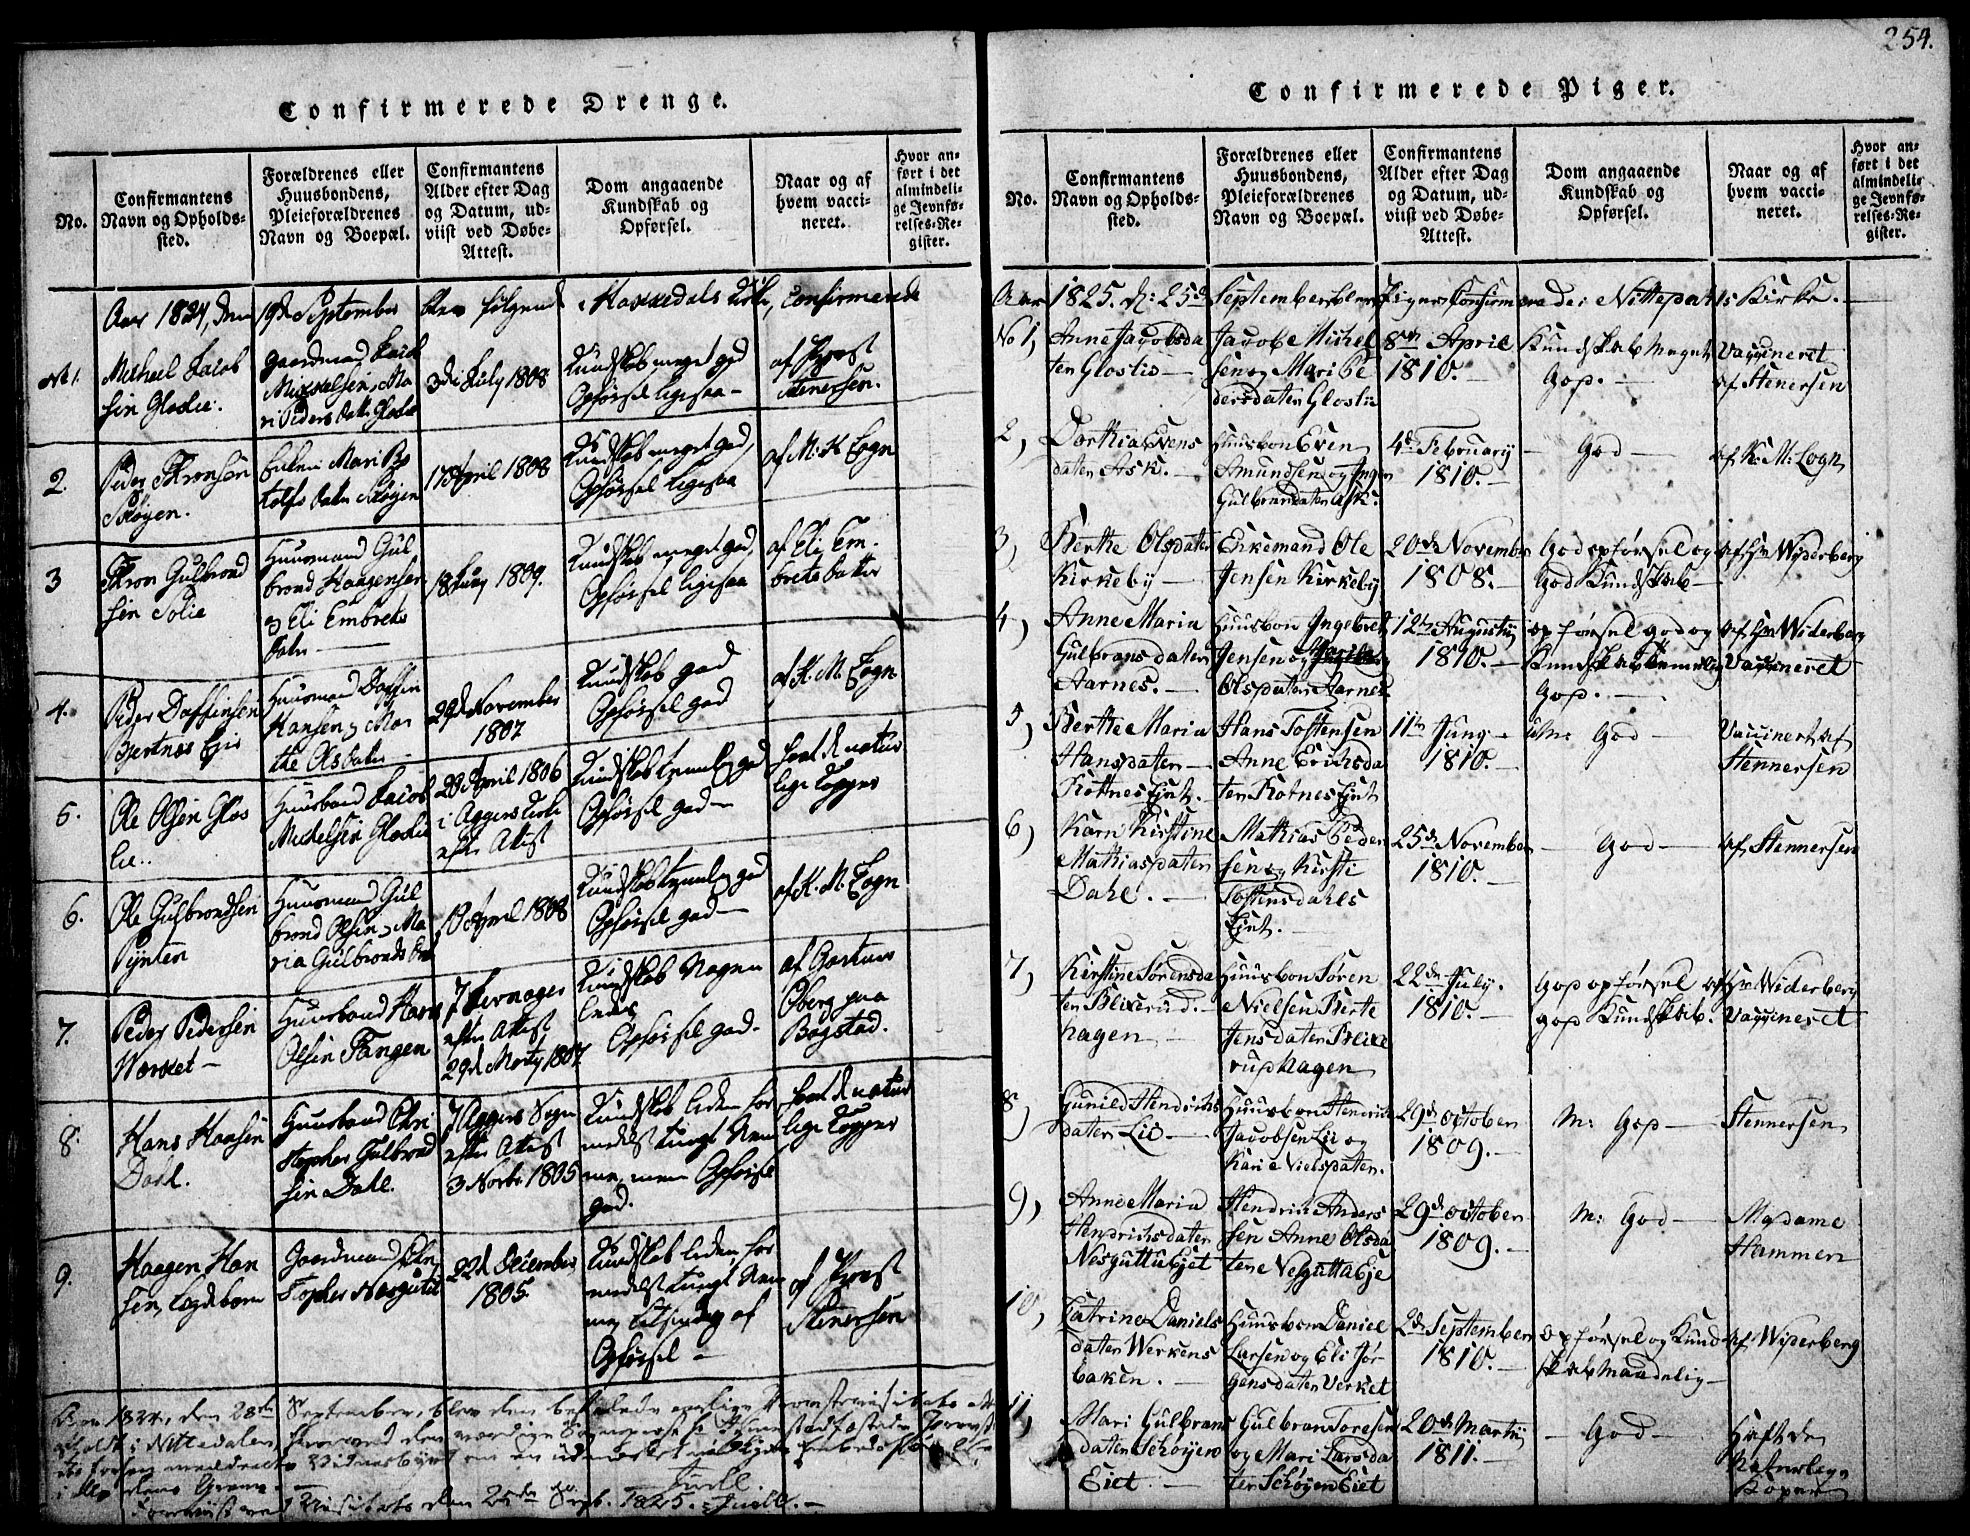 254.
Confirmerede Drenge.
No.
Confirmantens
Navn og Opholds-
sted.
Forældrenes eller
Huusbondens,
Pleieforældrenes
Navn og Boepæl.
Confirmantens
Alder efter Dag
og Datum, ud-
viist ved Døbe-
Attest.
Dom angaaende
Kundskab og
Opførsel.
Naar og af
hvem vacci-
neret.
Hvor an-
ført i det
almindeli-
ge Jevnfø-
relses-Re-
gister.
Aar 1824, den 19de September blev følgende i Hakkedals Kirke, Confirmerede
No 1.
Michael Jacob
sen Glaslie.
Gaardmand Jacob
Mikkelsen, Ma
ri Peders datter Glaslie
3de July 1808
Kundskab meget god
Opførsel ligesaa
af Provst
Stenersen.
2.
Peder Thronsen
Skøyen.
17 April 1808
Kundskab meget god,
Opførsel ligesaa
af K. M. Logn
3
Thron Gulbrand
sen
Huusmand Gul
brand Haagensen
og Eli Embrets
datter
18 Juny 1809.
Kundskab meget god,
Opførsel ligesaa
af Eli Em-
bretsdatter
4.
Peder Daffinsen
Bjertnæs Eje
Huusmand Daffin
Hansen og Mar
the Olsdatter
29de November
1807
Kundskab god
Opførsel god
af K. M. Logn
5.
Ole Olsen Glas
lie.
Huusbond Jacob
Michelsen Glaslie
20 April 1806
i Aggers Kirke
efter Attest
Kundskab temmelig god
Opførsel god
havt de natur
lige Kopper
6.
Ole Gulbrandsen
Pynten
Huusmand Gul
brand Olsen og Ma
ria Gulbrandsdatter
April 1808
Kundskab temmelig god
Opførsel god
af K. M. Logn
7.
Peder Pedersen
Værket
Huusbond Hans
Olsen Tangen
efter Attest
29de Marty 1807
Kundskab Nogen
ledes
Opførsel god.
af
Oberg paa
Bogstad.
8.
Hans Hansen
Dahl.
Huusbond Chri
stopher Gulbrand
sen Dahl.
i Aggers Sogn
efter Attest
3 Novbr 1805
Kundskab liden for
medelst tungt Nem
me, men Opførsel
god.
havt de natur
lige Kopper
9.
Haagen Han
sen, Lægdebarn
Gaardmand Chri
stopher Næsgutu
22de December
1805.
Kundskab liden for
medelst tungt Nem
me, af
Opførsel
af Provst
Stenersen
Aar 1824, den 28de September, blev den
Juell.
Visitats den 25de Sept. 1825. Juell.
Confirmerede Piger.
No.
Confirmantens
Navn og Opholds-
sted.
Forældrenes eller
Huusbondens,
Pleieforældrenes
Navn og Boepæl.
Confirmantens
Alder efter Dag
og Datum, ud-
viist ved Døbe-
Attest.
Dom angaaende
Kundskab og
Opførsel.
Naar og af
hvem vacci-
neret.
Hvor an-
ført i det
almindeli-
ge Jevnfø-
relses-Re-
gister.
Aar 1825. d: 25de September blev Piger Confirmerede i Nittedals Kirke.
No 1,
Anne Jacobsda
ter Gloslie
Jacob Michel
sen og Mari Pe
dersdater Gloslie
8de April
1810.
Kundskab Meget
God.
Vaccineret
af Stenersen
2,
Dorthia Evens
dater Ask.
Huusbon Even
Amundsen og Inger
Gulbransdater Ask.
4de February
1810.
God
af K: M: Logn
3,
Berthe Olsdater
Kirkeby
Enkemand Ole
Jensen Kirkeby
20de November
1808.
God opførsel og
God Kundskab
af Hr Widerberg
4,
Anne Maria
Gulbransdater
Aarnes.
Huusbon Ingebret
Jensen og
Olsdater Aarnes
12te Augusty
1810.
opførsel god og
Kundskab temmelig
God.
af Hr Widerberg
Vaccineret
5,
Berthe Maria
Hansdater
Kottnes Ejet.
Hans Tostensen
Anne Erichsda
ter Kotnes Ejet
11te Juny
1810.
God
Vaccinert af
Stennersen
6,
Karn Kirstine
Mathiasdater
Dahl.
Mathias Peder
sen og Kirsti
Tostensdahls
Ejet.
25de November
1810.
God
af Stennersen
7,
Kirstine Sørensda
ter Blixrud.
hagen
Huusbon Søren
Nielsen Berte
Jensdater Blixe
rudhagen
22de July.
1810.
God opførsel og
god Kundskab.
Hr Widerberg
Vaccineret
8,
Gunild Hendrichs
dater Lie
Huusbon Hendrich
Jacobsen Lie og
Kari Nielsdater.
29de october
1809.
M: God
Stennersen
9,
Anne Maria
Hendrichsdater
Nesguttu Ejet
Hendrich Anders
sen Anne Olsda
ter Nesgutta Eje
29de october
1809.
M: God
Madame
Hammer
10,
Catrine Daniels
dater Werkens
baken.
Huusbon Daniel
Larsen og Eli Jør
gensdater Verket
2de September
1810.
opførsel og Kund
skab Maadelig
af Widerberg
11,
Mari Gulbrans
dater Schøyen
Eiet
Gulbran Toresen
og Mari Larsda
ter Schøyen Eiet
20de Marty
1811.
God
Haft de
Naturlige
Koper